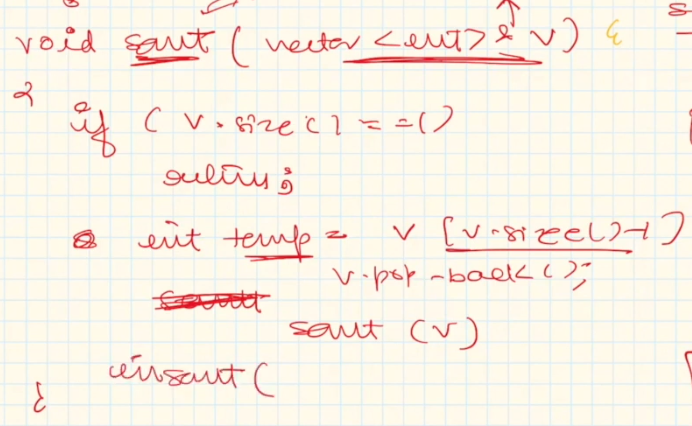 void sort ( vector <int> & v) {
{
if ( v.size() == 1)
return;
int temp = v [v.size()-1]
v.pop-back();
sort (v)
insert (
}